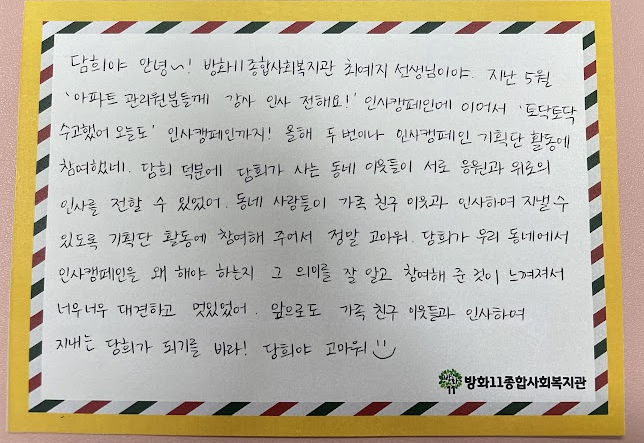 담희야 안녕~! 방화11종합사회복지관 최예지 선생님이야. 지난 5월
'아파트 관리원분들께 감사 인사 전해요!' 인사캠페인에 이어서 '토닥토닥
수고했어 오늘도' 인사캠페인까지! 올해 두 번이나 인사캠페인 기획단 활동에
참여했네. 담희 덕분에 담희가 사는 동네 이웃들이 서로 응원과 위로의
인사를 전할 수 있었어. 동네 사람들이 가족 친구 이웃과 인사하여 지낼 수
있도록 기획단 활동에 참여해 주어서 정말 고마워. 담희가 우리 동네에서
인사캠페인을 왜 해야 하는지 그 의미를 잘 알고 참여해 준 것이 느껴져서
너무너무 대견하고 멋있었어. 앞으로도 가족 친구 이웃들과 인사하여
지내는 담희가 되기를 바라! 담희야 고마워
방화11종합사회복지관